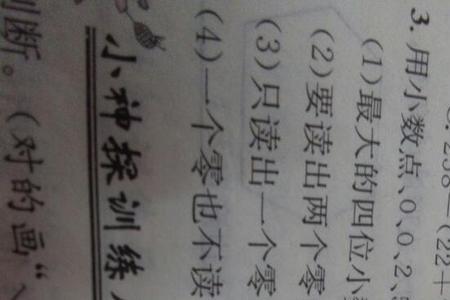 3. 用小数点、0、0、2、
(1)最大的四位小
(2)要读出两个零
(3)只读出一个零
(4)一个零也不读
小神探训练
判断。(对的画“